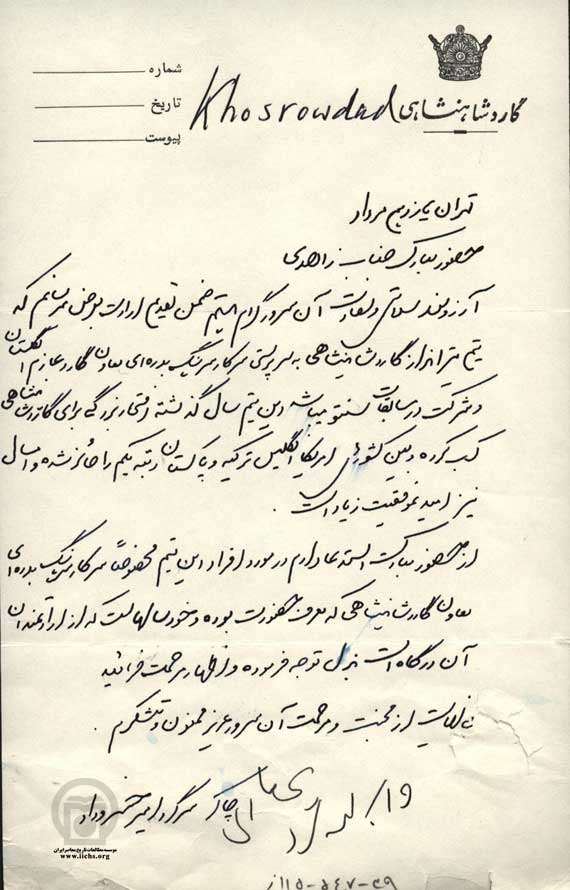 شماره
تاریخ
پیوست
گارد شاهنشاهی Khosrowdad
تهران یازدهم مرداد
حضور مبارک جناب زاهدی
آرزومند سلامتی و سعادت آن سرور گرام هستم ضمن تقدیم ارادت بعرض میرسانم که
تیم تیراندازی گارد شاهنشاهی به سرپرستی سرکار سرهنگ بدره‌ای معاون گارد عازم انگلستان
و شرکت در مسابقات سنتو میباشد این تیم سال گذشته افتخار بزرگی برای گارد شاهنشاهی
کسب کرده و بین کشورهای امریکا انگلیس ترکیه و پاکستان رتبه یکم را حائز شده و امسال
نیز امید موفقیت زیاد است .
از حضور مبارکت استدعا دارم در مورد افراد این تیم مخصوصاً سرکار سرهنگ بدره‌ای
معاون گارد شاهنشاهی که معرف حضورت بوده و خود سالهاست که از ارادتمندان
آن درگاه است بذل توجه فرموده و اظهار مرحمت فرمائید
نهایت از محبت و مرحمت آن سرور عزیز ممنون و متشکرم .
چاکر سرگرد امیر خسروداد
موسسه مطالعات تاریخ معاصر ایران
www.iichs.org
۲۹-۵۴۷-۱۱۵از